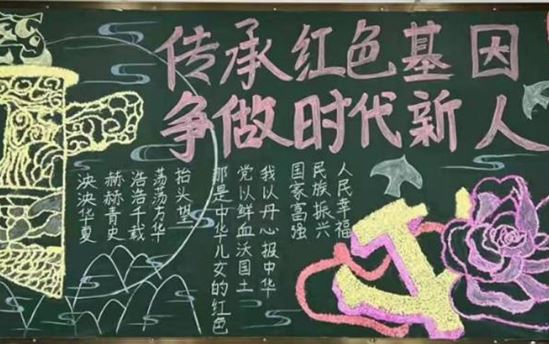 传承红色基因
争做时代新人
泱泱华夏
赫赫青史
浩浩千载
荡荡方华
抬头望
那是中华儿女的红色
党以鲜血沃国土
我以丹心报中华
国家富强
民族振兴
人民幸福